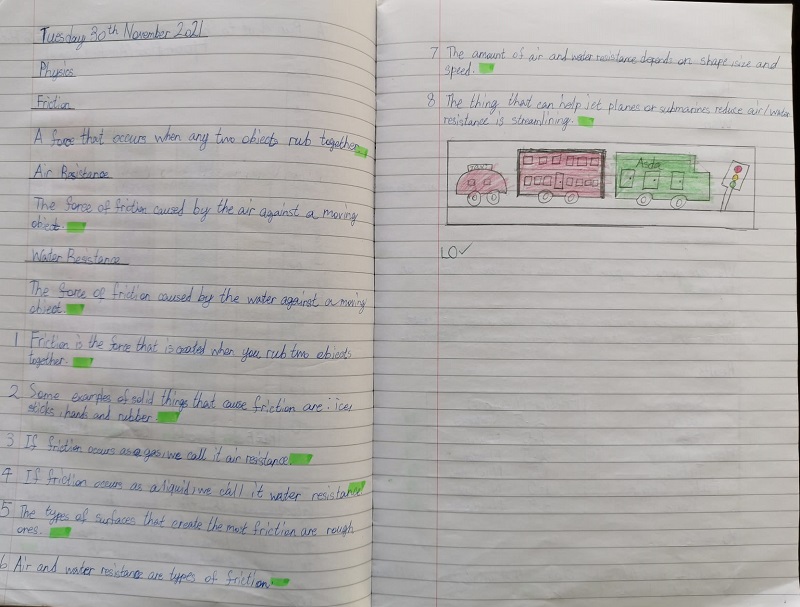 Tuesday 30th November 2021
Physics
Friction
A force that occurs when any two objects rub together.
Air Resistance
The force of friction caused by the air against a moving
object.
Water Resistance
The force of friction caused by the water against a moving
object.
1 Friction is the force that is created when you rub two objects
together.
2 Some examples of solid things that cause friction are: ice,
sticks, hands and rubber
3 If friction occurs as a gas, we call it air resistance
4 If friction occurs as a liquid, we call it water resistance
5 The types of surfaces that create the most friction are rough
ones.
6 Air and water resistance are types of friction.
7 The amount of air and water resistance depends on shape, size and
speed.
8 The thing that can help jet planes or submarines reduce air/water
resistance is streamlining.
Asda
LO✓